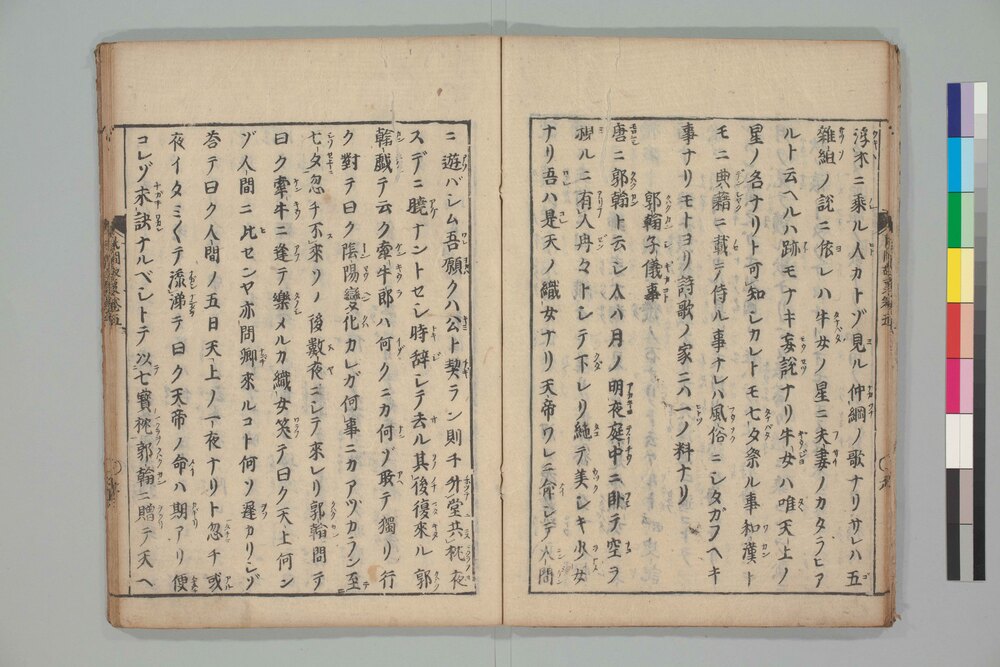 浮木ニ乗ル人カトゾ見ル仲綱ノ歌ナリサレハ五
雜組ノ説ニ依レハ牛女ノ星ニ夫妻ノカタラヒア
ルト云ヘルハ跡モナキ妄説ナリ牛女ハ唯天上ノ
星ノ名ナリト可知シカレトモ七夕祭ル事和漢ト
モニ典籍ニ載テ侍ル事ナレハ風俗ニシタガフヘキ
事ナリモトヨリ詩歌ノ家ニハ一ノ料ナリ
郭翰子儀事
唐ニ郭翰ト云シ人八月ノ明夜庭中ニ臥テ空ヲ
視ルニ有人冉々トシテ下レリ純テ美シキ少女
ナリ吾ハ是天ノ織女ナリ天帝ワレニ命シテ人間
ニ遊バシム吾願クハ公ト契ラン則チ升堂共枕夜
スデニ曉ナントセシ時辞シテ去ル其後復來ル郭
翰戯テ云ク牽牛郎ハ何クニカ何ゾ敢テ獨リ行
ク對テ曰ク陰陽變化カレガ何事ニカアヅカラン至
七夕忽チ不來ソノ後數夜ニシテ來レリ郭翰問テ
曰ク牽牛ニ逢テ樂メルカ織女笑テ曰ク天上何ン
ゾ人間ニ比センヤ亦問卿來ルコト何ソ遲カリシゾ
荅テ曰ク人間ノ五日天上ノ一夜ナリト忽チ或
夜イタミ泣テ曰ク天帝ノ命ハ期アリ便
コレゾ永訣ナルベシトテ以七寳枕郭翰ニ贈テ天ヘ